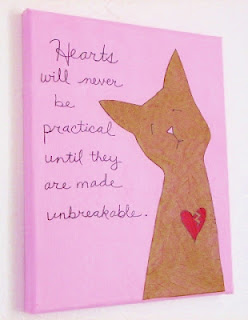 Hearts
will never
be
practical
until they
are made
unbreakable.